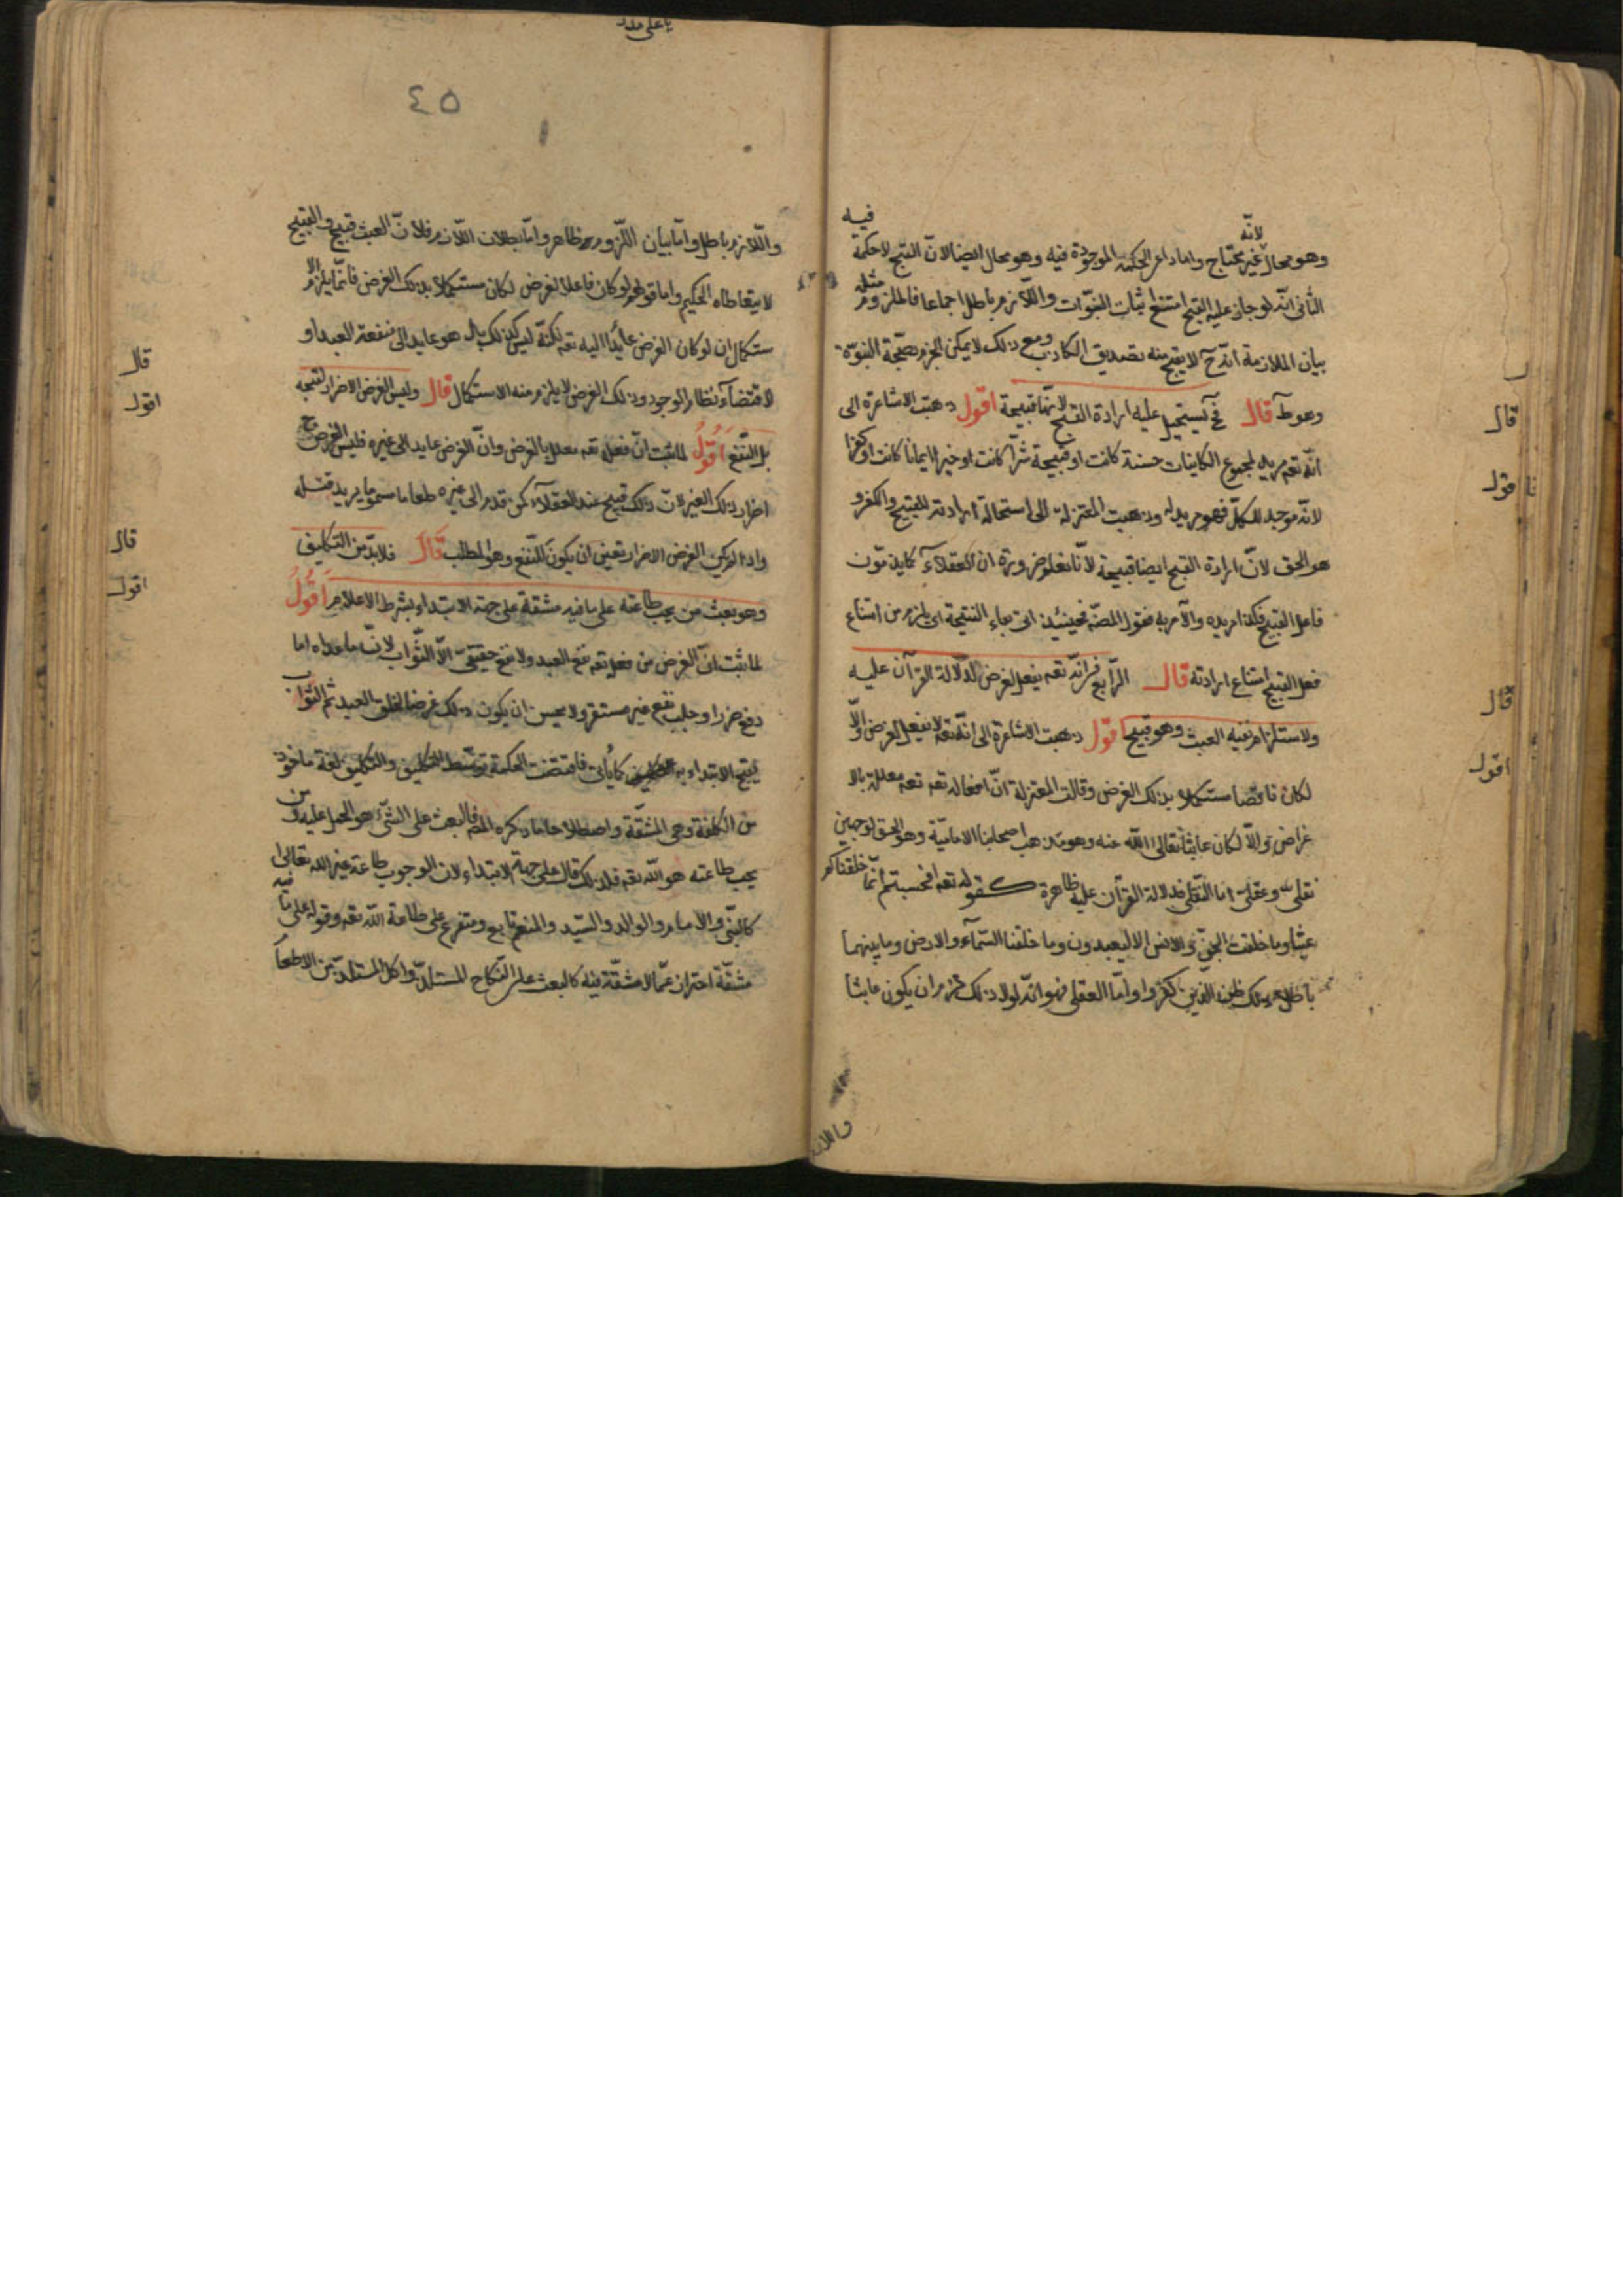 يا علي مدد
٤٥
لانه
فيه
وهو محال غير محتاج واما داعي الحكمة الموجودة فيه وهو محال ايضا لانّ القبيح لا حكمة
الثاني انّه لو جاز عليه القبيح امتنع اثبات النبوّات واللّازم باطل اجماعا فالملزوم مثله
بيان الملازمة انّه ح لا يقبح منه تصديق الكاذب ومع ذلك لا يمكن الجزم بصحّة النبوّة
وهو ظ قال فح يستحيل عليه ارادة القبيح لانّها قبيحة اقول ذهبت الاشاعرة الى
انّه تعم مريد لمجموع الكاينات حسنة كانت او قبيحة شرّا كانت او خيرا ايمانا كانت او كفرا
لانّه موجد للكلّ فهو مريد له وذهبت المعتزلة الى استحالة ارادته للقبيح والكفر و
هو الحق لانّ ارادة القبيح ايضا قبيحة لانّا نعلم ضرورة ان العقلآء كما يذمّون
فاعل القبيح فكذا مريده والآمر به فقول المصنّف فحينئذ اتى بفاء النتيجة اى يلزم من امتناع
فعل القبيح امتناع ارادته قال الرّابع في انّه تعم يفعل لغرض لدلالة القرآن عليه
ولاستلزام نفيه العبث وهو قبيح اقول ذهبت الاشاعرة الى انّه تعم لا يفعل لغرض والّا
لكان ناقصا مستكملا بذلك الغرض وقالت المعتزلة انّ افعاله تعم تعم معللة بالا
غراض والّا لكان عابثا تعالى الله عنه وهو مذهب اصحابنا الاماميّة وهو الحق لوجهين
نقلى وعقلىّ امّا النّقلي فدلالة القرآن عليه ظاهرة كقوله تعم افحسبتم انّما خلقناكم
عبثا وما خلقت الجنّ والانس الا ليعبدون وما خلقنا السّمآء والارض وما بينهما
باطلا ذلك ظنّ الذين كفروا وامّا العقلي فهو انّه لولا ذلك لزم ان يكون عابثا
واللاز
قال
اقول
قال
اقول
واللّازم باطل وامّا بيان اللّزوم فظاهر وامّا بطلان اللّازم فلانّ العبث قبيح والقبيح
لا يتعاطاه الحكيم واما قولهم لو كان فاعلا لغرض لكان مستكملا بذلك الغرض فانّما يلزم الا
ستكمال ان لو كان الغرض عايدا اليه تعم لكنّه ليس كذلك بل هو عايد الى منفعة العبد او
لاقتضآء نظام الوجود وذلك الغرض لا يلزم منه الاستكمال قال وليس الغرض الاضرار لقبحه
بل النّفع اقول لمّا ثبت انّ فعله تعم معلل بالغرض وانّ الغرض عايد الى غيره فليس الغرض ح
اضرار ذلك الغير لانّ ذلك قبيح عند العقلآء كمن قدم الى غيره طعاما مسموما يريد قتله
واذا لم يكن الغرض الاضرار تعيّن ان يكون للنّفع وهو المطلب قال فلا بدّ من التكليف
وهو بعث من يجب طاعته على ما فيه مشقة على جهة الابتداء بشرط الاعلام اقول
لما ثبت انّ الغرض من فعله تعم نفع العبد ولا نفع حقيقيّ الّا الثّواب لانّ ما عداه اما
دفع ضرر او جلب نفع غير مستقر ولا يحسن ان يكون ذلك غرضا لخلق العبد ثم الثّواب
يقبح الابتداء به كما يأتي فاقتضت الحكمة توسّط التكليف والتكليف لغة ماخوذ
من الكلفة وهي المشقّة واصطلاحا ما ذكره المصنّف فالبعث على الشّيء هو الحمل عليه ومن
يجب طاعته هو الله تعم فلذلك قال على جهة الابتداء لان الوجوب طاعة غير الله تعالى
كالنبيّ والامام والوالد والسّيد والمنعم تابع ومتفرع على طاعة الله تعم وقوله على ما فيه
مشقّة احتراز عمّا لا مشقّة فيه كالبعث على النّكاح المستلذّ واكل المستلذّ من الاطعمة
قال
اقول
قال
اقول